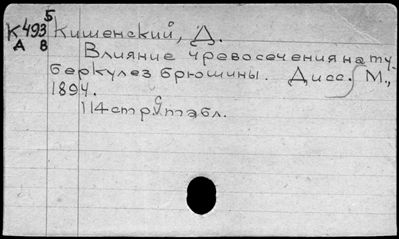 К493⁵ Кишенский, Д.
А В
Влияние чревосечения на ту-
беркулез брюшины. Дисс. М.,
1894.
114 стр. с табл.